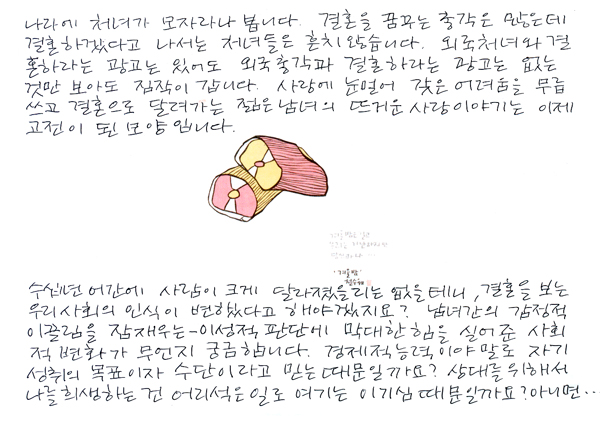 나라에 처녀가 모자라나 봅니다. 결혼을 꿈꾸는 총각은 많은데
결혼하겠다고 나서는 처녀들은 흔치 않습니다. 외국처녀와 결
혼하라는 광고는 있어도 외국총각과 결혼하라는 광고는 없는
것만 보아도 짐작이 갑니다. 사랑에 눈멀어 갖은 어려움을 무릅
쓰고 결혼으로 달려가는 젊은 남녀의 뜨거운 사랑이야기는 이제
고전이 된 모양입니다.
수십년 어간에 사람이 크게 달라졌을리는 없을테니, 결혼을 보는
우리사회의 인식이 변했다고 해야겠지요? 남녀간의 감정적
이끌림을 잠재우는-이성적 판단에 막대한 힘을 실어준 사회
적 변화가 무언지 궁금합니다. 경제적 능력이야말로 자기
성취의 목표이자 수단이라고 믿는 때문일까요? 상대를 위해서
나를 희생하는 건 어리석은 일로 여기는 이기심 때문일까요? 아니면··